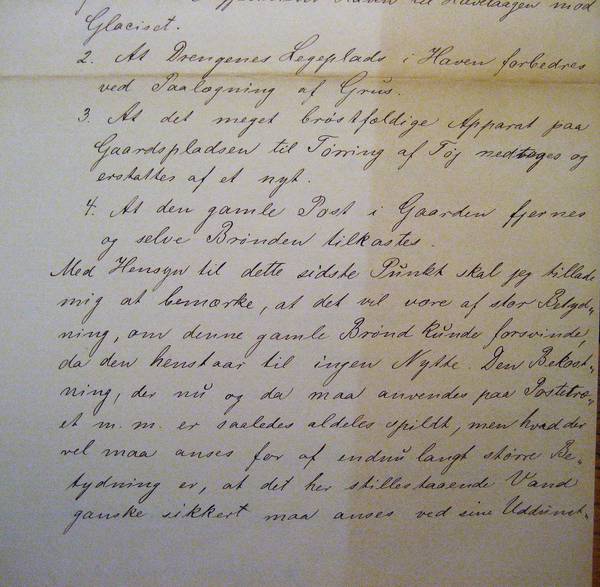 til mod
Glaciset.
2. At Drengenes Legeplads i Haven forbedres
ved Paalægning af Grus.
3. At det meget brøstfældige Apparat paa
Gaardspladsen til Tørring af Tøj nedtages og
erstattes af et nyt.
4. At den gamle Post i Gaarden fjernes
og selve Brønden tilkastes.
Med Hensyn til dette sidste Punkt skal jeg tillade
mig at bemærke, at det vil være af stor Betyd„
ning, om denne gamle Brønd kunde forsvinde,
da den henstaar til ingen Nytte. Den Bekost„
ning, der nu og da maa anvendes paa Postetræ„
et m. m. er saaledes aldeles spildt, men hvad der
vel maa anses for af endnu langt større Be„
tydning er, at det her stillestaaende Vand
ganske sikkert maa anses ved sine Uddunst„